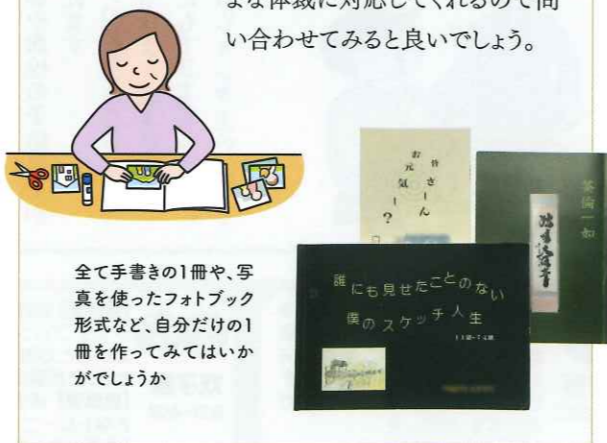 まな体裁に対応してくれるので問
い合わせてみると良いでしょう。
皆さーん
お元気ー?
茶論一如
誰にも見せたことのない
僕のスケッチ人生
11歳~74歳
全て手書きの1冊や、写
真を使ったフォトブック
形式など、自分だけの1
冊を作ってみてはいか
がでしょうか